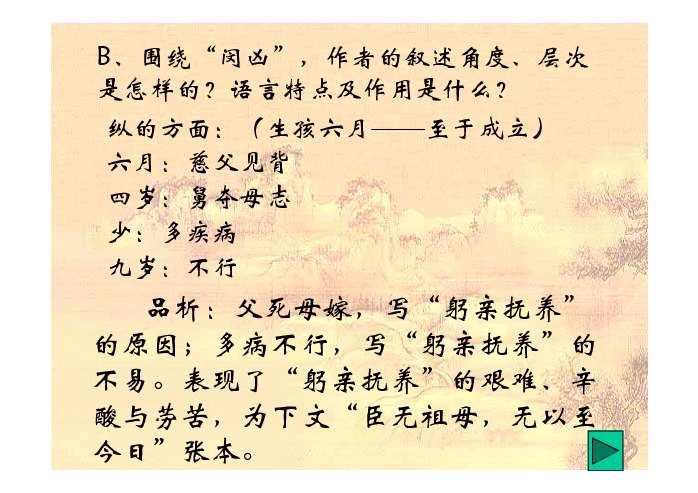 B、围绕“闵凶”，作者的叙述角度、层次
是怎样的？语言特点及作用是什么？
纵的方面：（生孩六月——至于成立）
六月：慈父见背
四岁：舅夺母志
少：多疾病
九岁：不行
品析：父死母嫁，写“躬亲抚养”
的原因；多病不行，写“躬亲抚养”的
不易。表现了“躬亲抚养”的艰难、辛
酸与劳苦，为下文“臣无祖母，无以至
今日”张本。